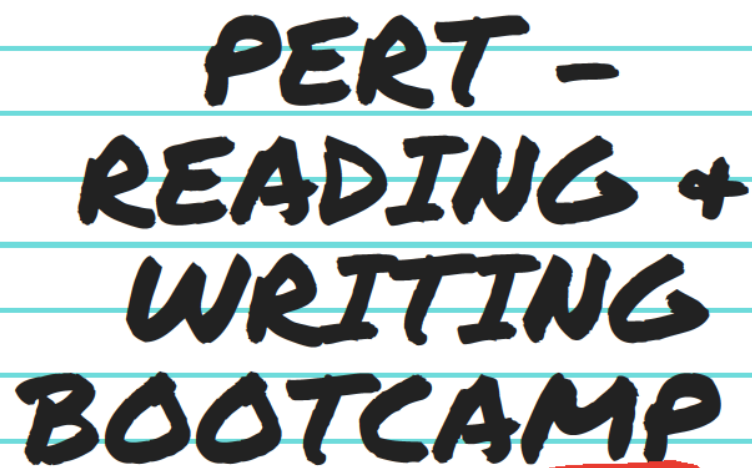 PERT -
READING &
WRITING
BOOTCAMP